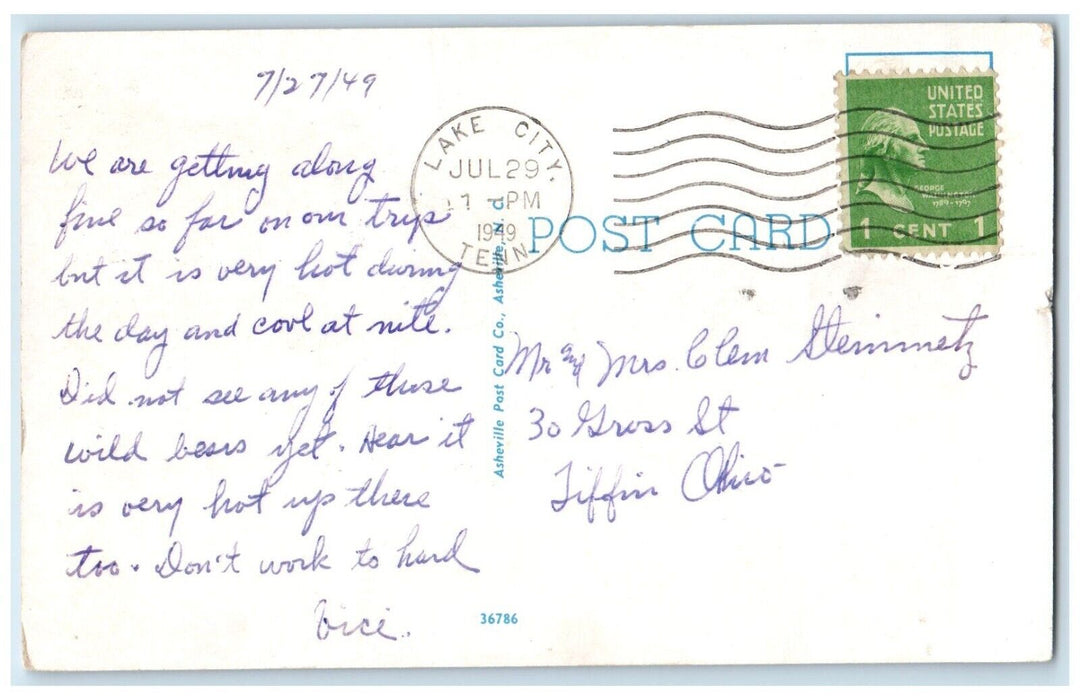 7/27/49
We are getting along
fine so far on our trip
but it is very hot during
the day and cool at nite.
Did not see any of those
wild bears yet. Hear it
is very hot up there
too. Don't work to hard
LAKE CITY,
JUL 29
PM
1949
TENN.
POST CARD
UNITED
STATES
POSTAGE
GEORGE
WASHINGTON
1789-1797
1 CENT 1
Asheville Post Card Co., Asheville, N. C.
Mr and Mrs. Clem Steinmetz
30 Gross St
Tiffin Ohio
36786